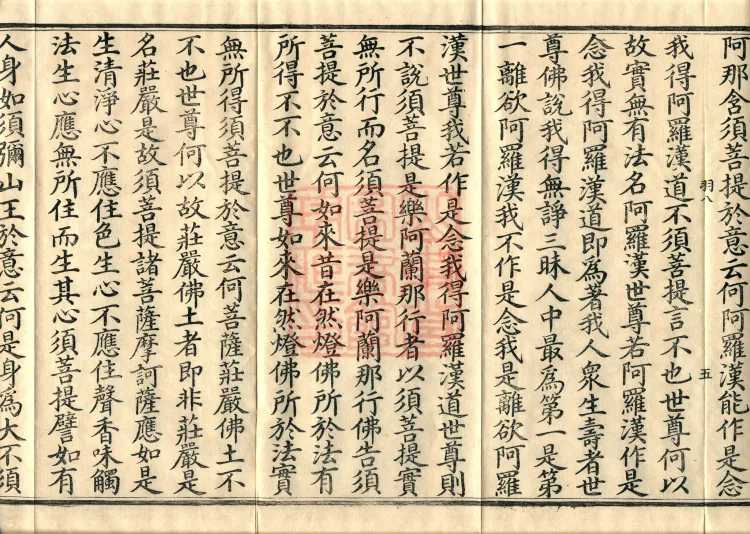 阿那含須菩提於意云何阿羅漢能作是念
羽八 五
我得阿羅漢道不須菩提言不也世尊何以
故實無有法名阿羅漢世尊若阿羅漢作是
念我得阿羅漢道即爲著我人衆生壽者世
尊佛說我得無諍三昧人中最爲第一是第
一離欲阿羅漢我不作是念我是離欲阿羅
漢世尊我若作是念我得阿羅漢道世尊則
不說須菩提是樂阿蘭那行者以須菩提實
無所行而名須菩提是樂阿蘭那行佛告須
菩提於意云何如來昔在然燈佛所於法有
所得不不也世尊如來在然燈佛所於法實
無所得須菩提於意云何菩薩莊嚴佛土不
不也世尊何以故莊嚴佛土者即非莊嚴是
名莊嚴是故須菩提諸菩薩摩訶薩應如是
生清淨心不應住色生心不應住聲香味觸
法生心應無所住而生其心須菩提譬如有
人身如須彌山王於意云何是身爲大不須